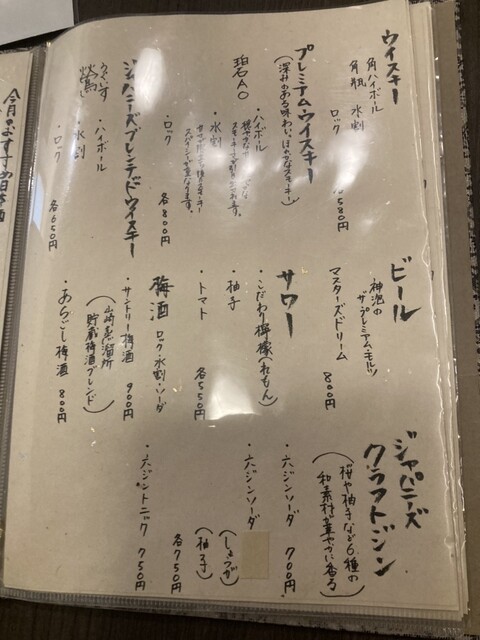 ウイスキー
角ハイボール
角瓶 水割
ロック
各580円
プレミアムウイスキー
(深みのある味わい、ほのかなスモーキー)
碧Ao
・ハイボール
・水割
・ロック 各800円
ジャパニーズブレンデッドウイスキー
うぐいす
・ハイボール
・水割
・ロック
各650円
今月のおすすめ日本酒
ビール
神泡の
ザ・プレミアムモルツ
マスターズドリーム 800円
サワー
・こだわり檸檬(れもん)
・柚子
・トマト 各550円
梅酒 ロック 水割 ソーダ
・サントリー梅酒 900円
(山崎蒸溜所
貯蔵梅酒ブレンド)
・あらごし梅酒 800円
ジャパニーズ
クラフトジン
(桜や柚子など6種の
和素材が華やかに香る)
・六ジンソーダ 700円
・六ジンソーダ
(しょうが)
(柚子)
各750円
・六ジントニック 750円